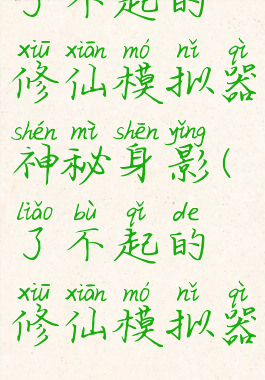 了不起的
xiū xiān mó nǐ qì
修仙模拟器
shén mì shēn yǐng
神秘身影(
liǎo bù qǐ de
了不起的
xiū xiān mó nǐ qì
修仙模拟器